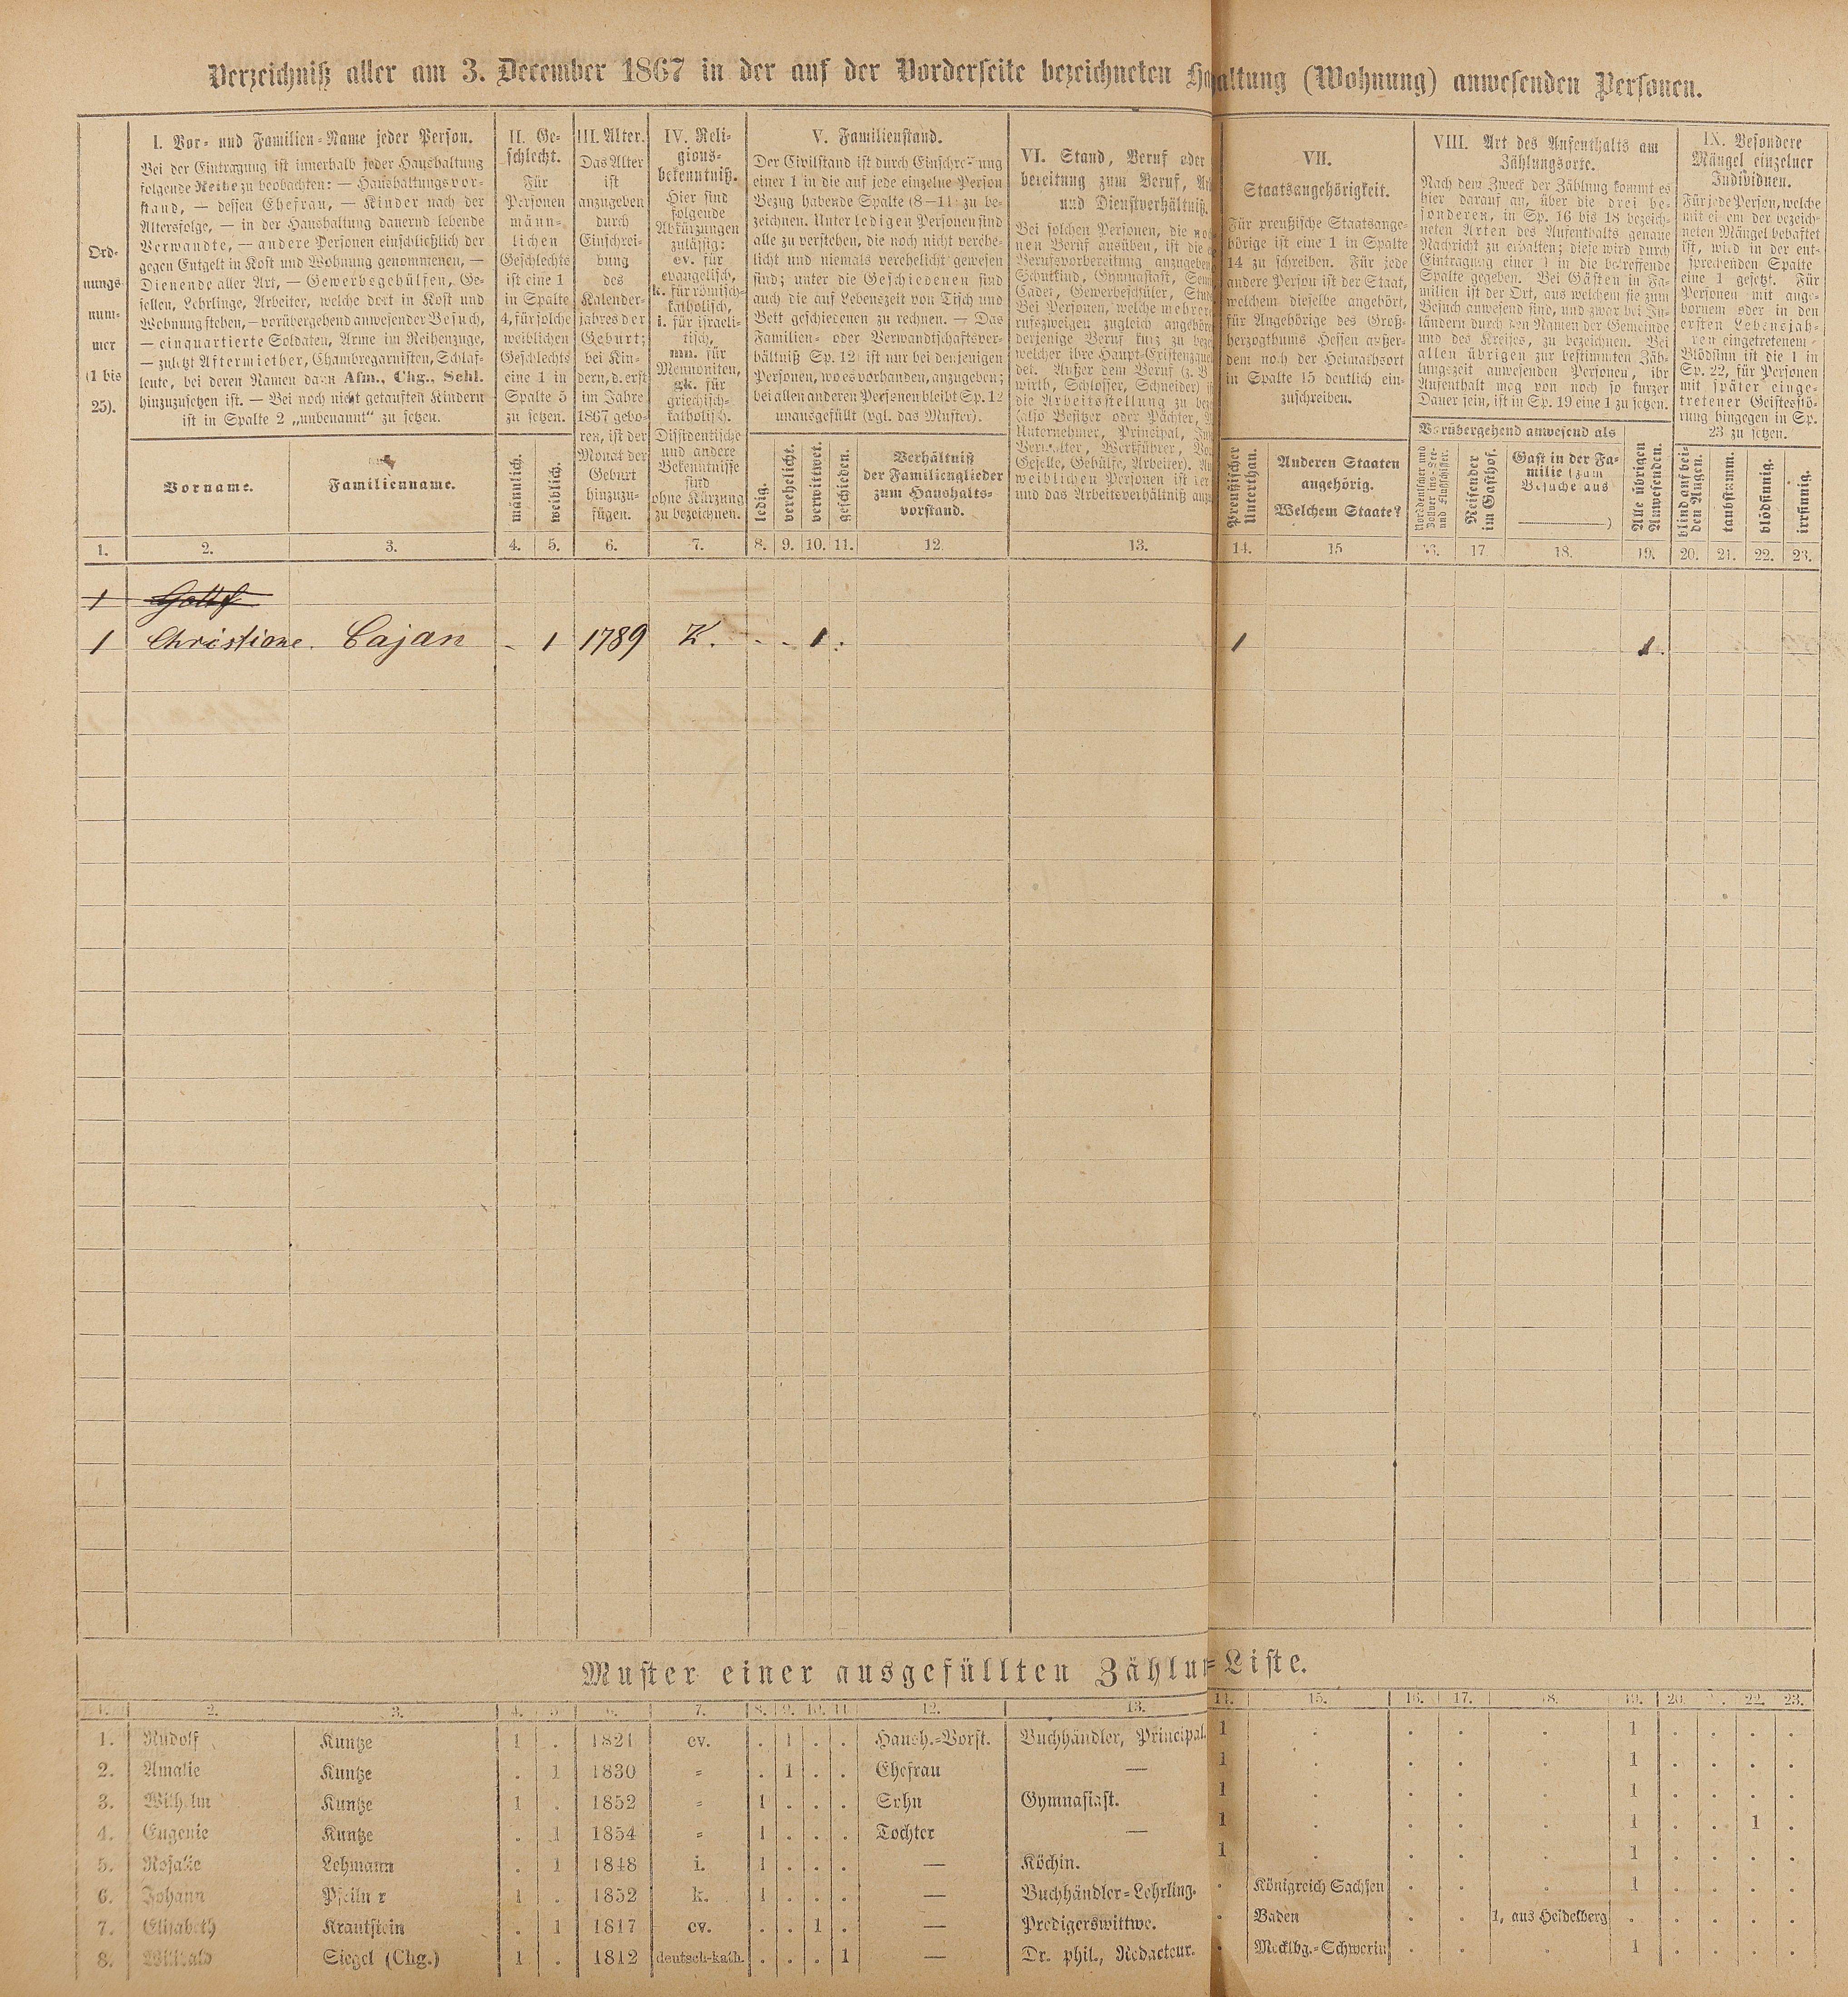 Verzeichniß aller am 3. December 1867 in der auf der Vorderseite bezeichneten altung (Wohnung) anwesenden Personen.
Ord-
nungs-
num-
mer
(1 bis
25).
I. Vor- und Familien-Name jeder Person.
Bei der Eintragung ist innerhalb jeder Haushaltung
folgende Reihe zu beobachten: — Haushaltungsvor-
stand, — dessen Ehefrau, — Kinder nach der
Altersfolge, — in der Haushaltung dauernd lebende
Verwandte, — andere Personen einschließlich der
gegen Entgelt in Kost und Wohnung genommenen, —
Dienende aller Art, — Gewerbegehülfen, Ge-
sellen, Lehrlinge, Arbeiter, welche dort in Kost und
Wohnung stehen, — vorübergehend anwesender Besuch,
— einquartierte Soldaten, Arme im Reihenzuge,
— zuletzt Aftermiether, Chambregarnisten, Schlaf-
leute, bei deren Namen dann Afm., Chg., Schl.
hinzuzusetzen ist. — Bei noch nicht getauften Kindern
ist in Spalte 2 „unbenannt“ zu setzen.
Vorname.
Familienname.
II. Ge-
schlecht.
Für
Personen
männ-
lichen
Geschlechts
ist eine 1
in Spalte
4, für solche
weiblichen
Geschlechts
eine 1 in
Spalte 5
zu setzen.
männlich.
weiblich.
III. Alter.
Das Alter
ist
anzugeben
durch
Einschrei-
bung
des
Kalender-
jahres der
Geburt;
bei Kin-
dern, d. erst
im Jahre
1867 gebo-
ren, ist der
Monat der
Geburt
hinzuzu-
fügen.
IV. Reli-
gions-
bekenntniß.
Hier sind
folgende
Abkürzungen
zulässig:
ev. für
evangelisch,
k. für römisch-
katholisch,
i. für israeli-
tisch,
mn. für
Mennoniten,
gk. für
griechisch-
katholisch.
Dissidentische
und andere
Bekenntnisse
sind
ohne Kürzung
zu bezeichnen.
V. Familienstand.
Der Civilstand ist durch Einschreibung
einer 1 in die auf jede einzelne Person
Bezug habende Spalte (8—11) zu be-
zeichnen. Unter ledigen Personen sind
alle zu verstehen, die noch nicht verehe-
licht und niemals verehelicht gewesen
sind; unter die Geschiedenen sind
auch die auf Lebenszeit von Tisch und
Bett geschiedenen zu rechnen. — Das
Familien- oder Verwandtschaftsver-
hältniß Sp. 12 ist nur bei denjenigen
Personen, wo es vorhanden, anzugeben;
bei allen anderen Personen bleibt Sp. 12
unausgefüllt (vgl. das Muster).
ledig.
verehelicht.
verwittwet.
geschieden.
Verhältniß
der Familienglieder
zum Haushalts-
vorstand.
VI. Stand, Beruf oder
bereitung zum Beruf,
und Dienstverhältniß.
Bei solchen Personen, die
nen Beruf ausüben, ist die
Berufsvorbereitung
Schulkind, Gymnasiast,
Cadet, Gewerbeschüler,
Bei Personen, welche
rufszweigen zugleich
derjenige Beruf kurz zu
welcher ihre
det. Außer dem Beruf (z. B.
wirth, Schlosser, Schneider)
die Arbeitsstellung zu
(also Besitzer oder Pächter,
Unternehmer, Principal,
Verwalter, Werkführer,
Geselle, Gehülfe, Arbeiter).
weiblichen Personen ist der
und das Arbeitsverhältniß
VII.
Staatsangehörigkeit.
Für preußische Staatsange-
hörige ist eine 1 in Spalte
14 zu schreiben. Für jede
andere Person ist der Staat,
welchem dieselbe angehört,
für Angehörige des Groß-
herzogthums Hessen außer-
dem noch der Heimathsort
in Spalte 15 deutlich ein-
zuschreiben.
Preußischer
Unterthan.
Anderen Staaten
angehörig.
Welchem Staate?
VIII. Art des Aufenthalts am
Zählungsorte.
Nach dem Zweck der Zählung kommt es
hier darauf an, über die drei be-
sonderen, in Sp. 16 bis 18 bezeich-
neten Arten des Aufenthalts genaue
Nachricht zu erhalten; diese wird durch
Eintragung einer 1 in die betreffende
Spalte gegeben. Bei Gästen in Fa-
milien ist der Ort, aus welchem sie zum
Besuch anwesend sind, und zwar bei In-
ländern durch den Namen der Gemeinde
und des Kreises, zu bezeichnen. Bei
allen übrigen zur bestimmten Zäh-
lungszeit anwesenden Personen, ihr
Aufenthalt mag von noch so kurzer
Dauer sein, ist in Sp. 19 eine 1 zu setzen.
Vorübergehend anwesend als
Norddeutscher und
Zollvereins-See-
und Flußschiffer.
Reisender
im Gasthof.
Gast in der Fa-
milie (zum
Besuche aus
)
Alle übrigen
Anwesenden.
IX. Besondere
Mängel einzelner
Individuen.
Für jede Person, welche
mit einem der bezeich-
neten Mängel behaftet
ist, wird in der ent-
sprechenden Spalte
eine 1 gesetzt. Für
Personen mit ange-
bornem oder in den
ersten Lebensjah-
ren eingetretenem
Blödsinn ist die 1 in
Sp. 22, für Personen
mit später einge-
tretener Geistesstö-
rung hingegen in Sp.
23 zu setzen.
blind auf bei-
den Augen.
taubstumm.
blödsinnig.
irrsinnig.
1. 2. 3. 4. 5. 6. 7. 8. 9. 10. 11. 12. 13. 14. 15 16. 17 18. 19. 20. 21. 22. 23.
1
1 Christiane. Cajan - 1 1789 K. - - 1 . 1 1.
Muster einer ausgefüllten Zählun=Liste.
1. 2. 3. 4. 5. 6. 7. 8. 9. 10. 11. 12. 13. 14. 15. 16. 17. 18. 19. 20. 22. 23.
1. Rudolf Kuntze 1 . 1821 ev. . 1 . . Haush.=Vorst. Buchhändler, Principal. 1 . . . . 1 . . . .
2. Amalie Kuntze . 1 1830 = . 1 . . Ehefrau — 1 . . . . 1 . . . .
3. Wilhelm Kuntze 1 . 1852 = 1 . . . Sohn Gymnasiast. 1 . . . . 1 . . . .
4. Eugenie Kuntze . 1 1854 = 1 . . . Tochter — 1 . . . . 1 . . 1 .
5. Rosalie Lehmann . 1 1848 i. 1 . . . — Köchin. 1 . . . . 1 . . . .
6. Johann 1 . 1852 k. 1 . . . — Buchhändler=Lehrling. . Königreich Sachsen . . . 1 . . . .
7. Elisabeth Krautstein . 1 1817 ev. . . 1 . — Predigerswittwe. . Baden . . 1, aus Heidelberg . . . . .
8. Willibald Siegel (Chg.) 1 . 1812 deutsch-kath. . . . 1 — Dr. phil., Redacteur. . Mecklbg.=Schwerin . . . 1 . . . .